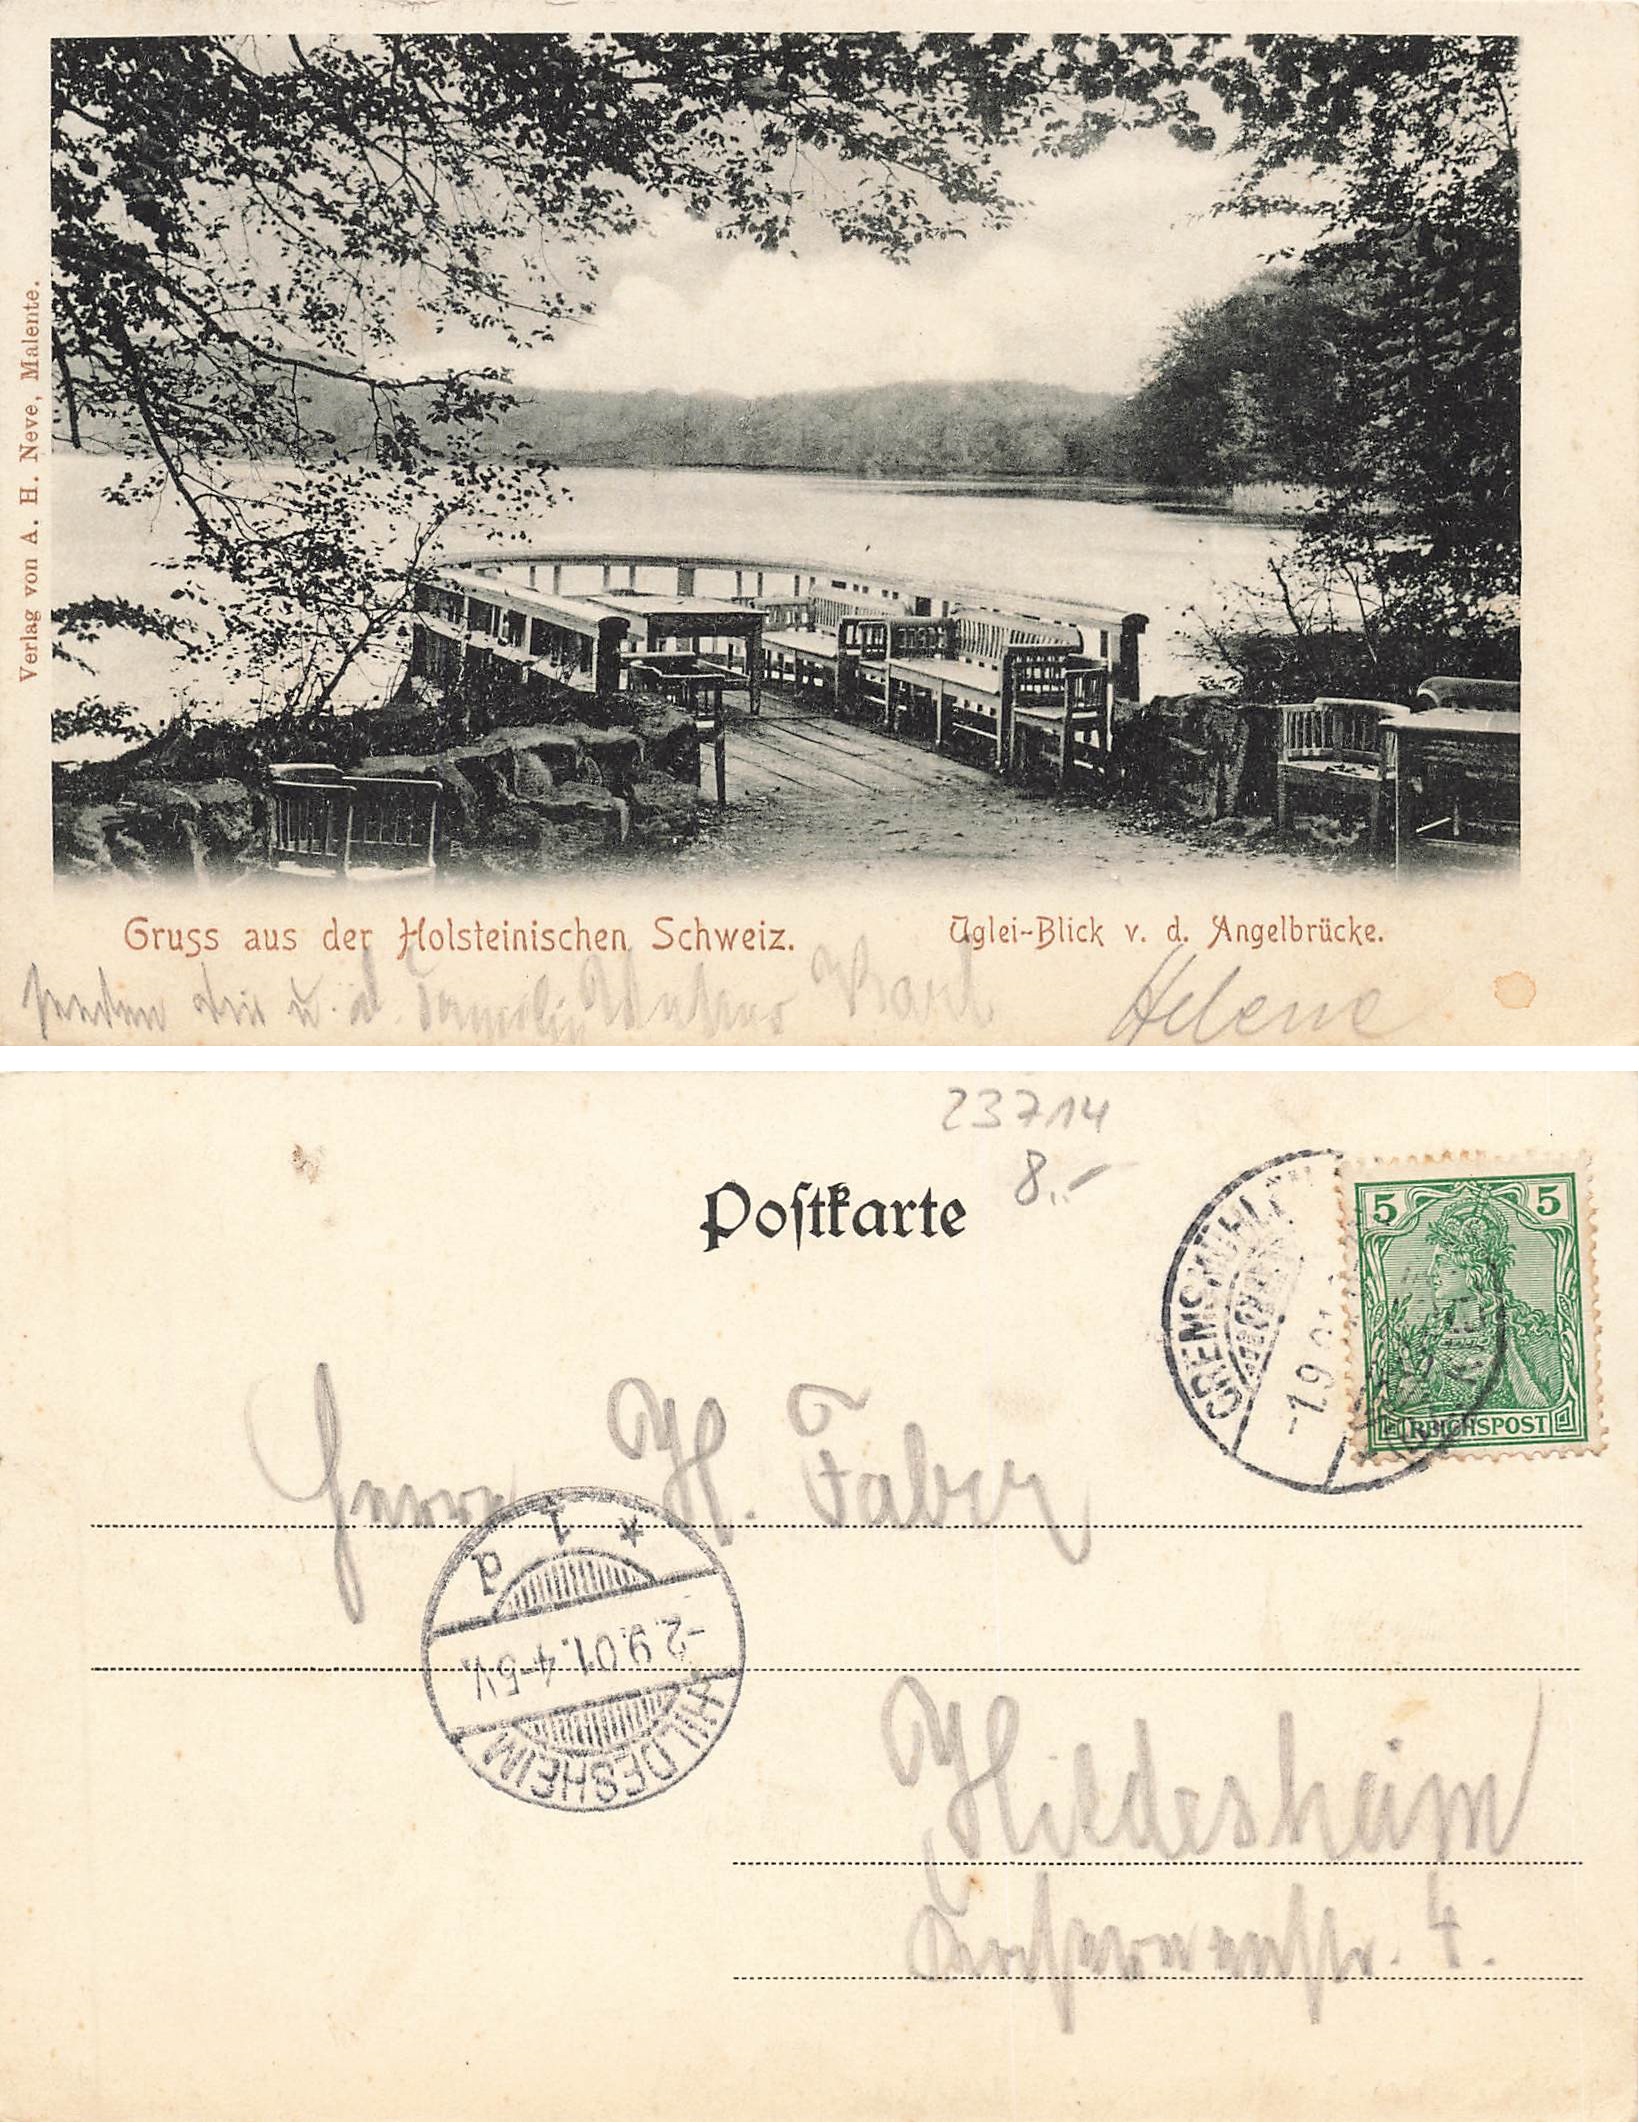 Verlag von A. H. Neve, Malente.
Gruss aus der Holsteinischen Schweiz.
Uglei-Blick v. d. Angelbrücke.
senden dir u. d. Familie Karl Helene
23714
8.-
Postkarte
GREMSMÜHLEN
-1.9.01
5 5
REICHSPOST
Herrn H. Faber
* 1 d
-2.9.01.4-5V.
HILDESHEIM
Hildesheim
4.